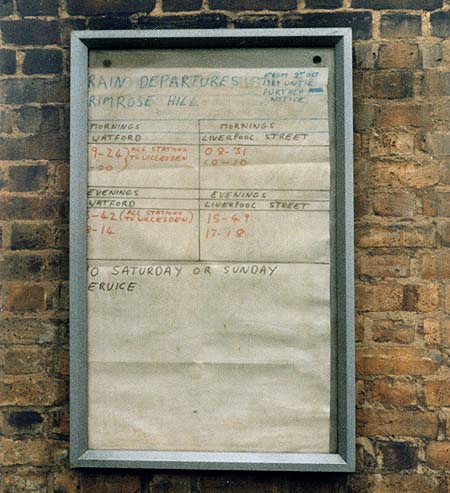 RAIN DEPARTURES
RIMROSE HILL
FROM 2ND OCT
1989 UNTIL
FURTHER
NOTICE
MORNINGS
WATFORD
9-24 (ALL STATIONS
-00 TO WILLESDEN)
MORNINGS
LIVERPOOL STREET
08-31
10-10
EVENINGS
WATFORD
-42 (ALL STATIONS
TO WILLESDEN)
-14
EVENINGS
LIVERPOOL STREET
15-49
17-18
O SATURDAY OR SUNDAY
ERVICE